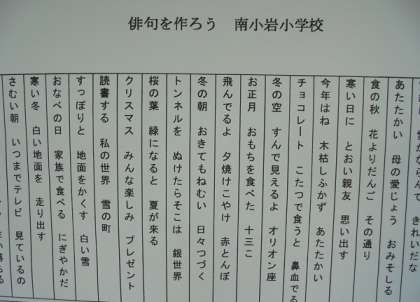 俳句を作ろう 南小岩小学校
きれいだな
あたたかい 母の愛じょう おみそしる
食の秋 花よりだんご その通り
寒い日に とおい親友 思い出す
今年はね 木枯しふかず あたたかい
チョコレート こたつで食うと 鼻血でる
冬の空 すんで見えるよ オリオン座
お正月 おもちを食べた 十三こ
飛んでるよ 夕焼けこやけ 赤とんぼ
冬の朝 おきてもねむい 日々つづく
トンネルを ぬけたらそこは 銀世界
桜の葉 緑になると 夏が来る
クリスマス みんな楽しみ プレゼント
読書する 私の世界 雪の町
すっぽりと 地面をかくす 白い雪
おなべの日 家族で食べる にぎやかだ
寒い冬 白い地面を 走り出す
さむい朝 いつまでテレビ 見ているの